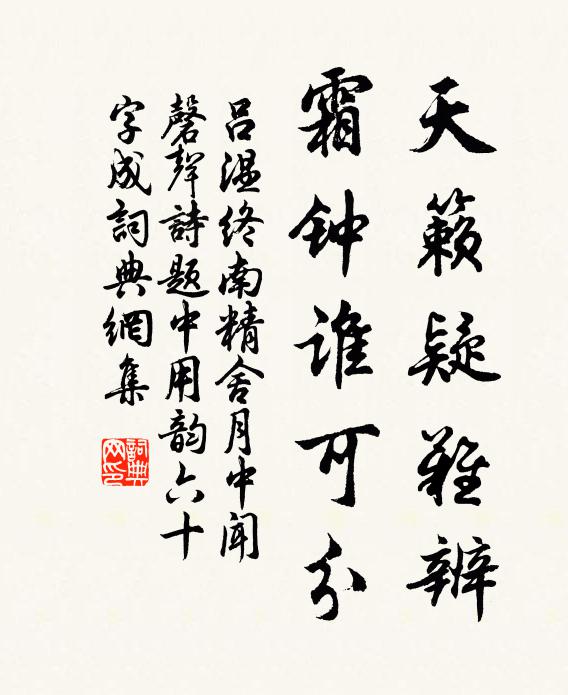 天籟疑難辨
霜钟谁可分
吕温终南精舍月中闻
磬聲詩題中用韵六十
字成詞典網集
詞典网印